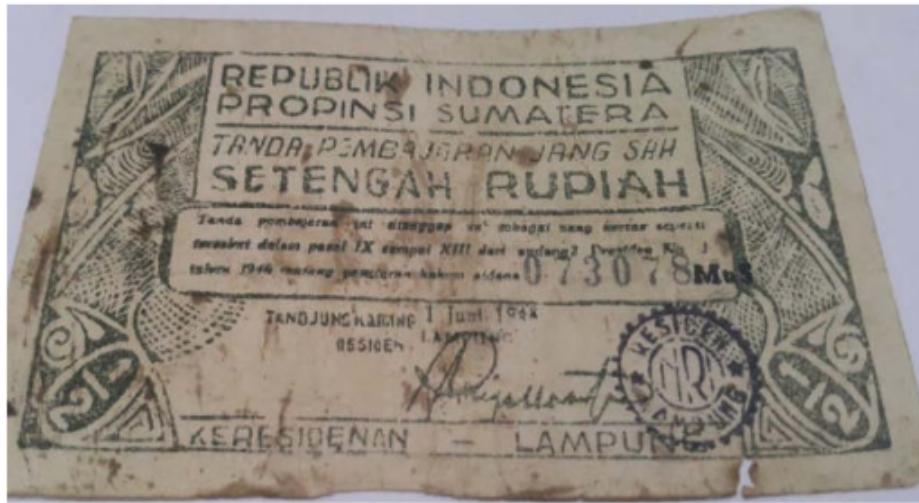 REPUBLIK INDONESIA
PROPINSI SUMATERA
TANDA PEMBAJARAN JANG SAH
SETENGAH RUPIAH
Tanda pembajaran ini dianggap sebagai uang kertas seperti
tersebut dalam pasal IX sampai XIII dari undang2 Presiden No. 1
tahun 1946 tentang peraturan hukum pidana 073078 MuS
TANDJUNGKARANG 1 Juni 1948
RESIDEN LAMPUNG
RESIDEN
NRI
LAMPUNG
1/2
1/2
KERESIDENAN - LAMPUNG